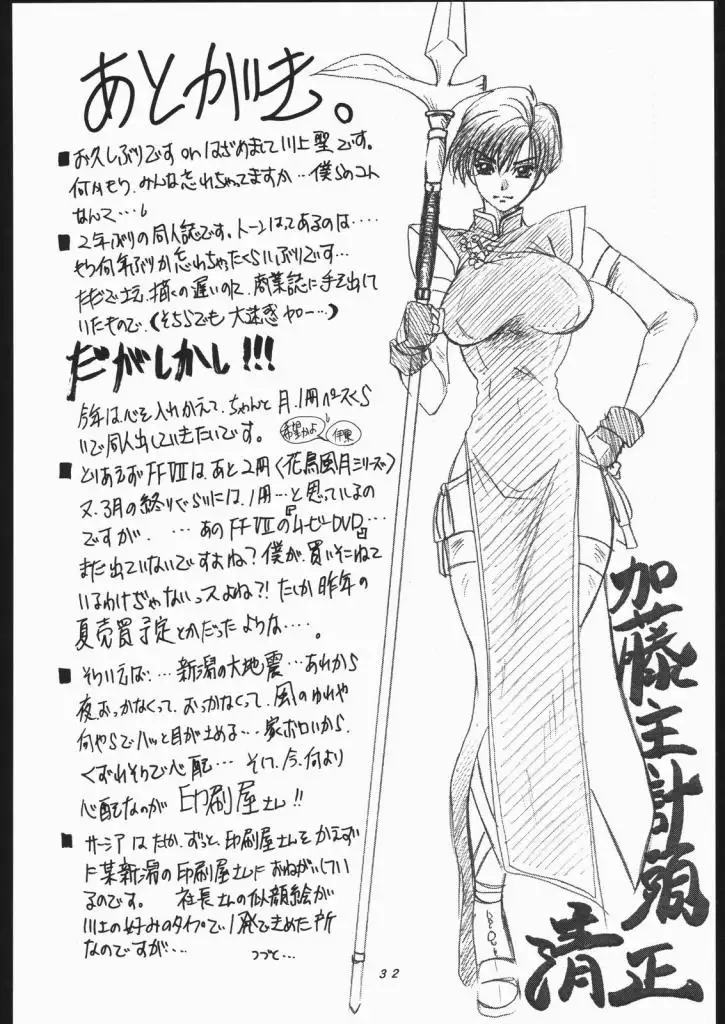 あとがき。
■お久しぶりです orはじめまして川上聖です。
何かもう、みんな忘れちゃってますか…僕らのコト
なんて…。
■2年ぶりの同人誌です。トーンはってあるのは‥‥
やつ何年ぶりか忘れちゃったくらいぶりです…
ただでさえ、描くの遅いので、商業誌に手を出して
いたもので、(そちらでも大迷惑ヤロー…)
だがしかし!!!
今年は心を入れかえて、ちゃんと月.1冊ペースくら
いで同人出していきたいです。
希望かよ
伊東
■とりあえずFFⅦは、あと2冊〈花鳥風月シリーズ〉
又、3月の終りぐらいには、1冊…と思っているの
ですが、…あのFFⅦの『ムービーDVD』…
まだ出ていないですよね?僕が、買いそこねて
いるわけぢゃないっスよね?!たしか昨年の
夏売買予定とかだったような‥‥。
■そういえば‥…新潟の大地震…あれから
夜、おっかなくって、おっかなくって、風のゆれや
何やらでハッと目が止める…家ボロいから、
くずれそうで心配…そして、今、何より
心配なのが印刷屋さん!!
■サーシアはたか、ずっと、印刷屋さんをかえず
に某新潟の印刷屋さんにおねがいしてい
るのです。社長さんの似顔絵が
川上の好みのタイプで、1発できめた所
なのですが…
つづと…
32
加藤主計頭
清正